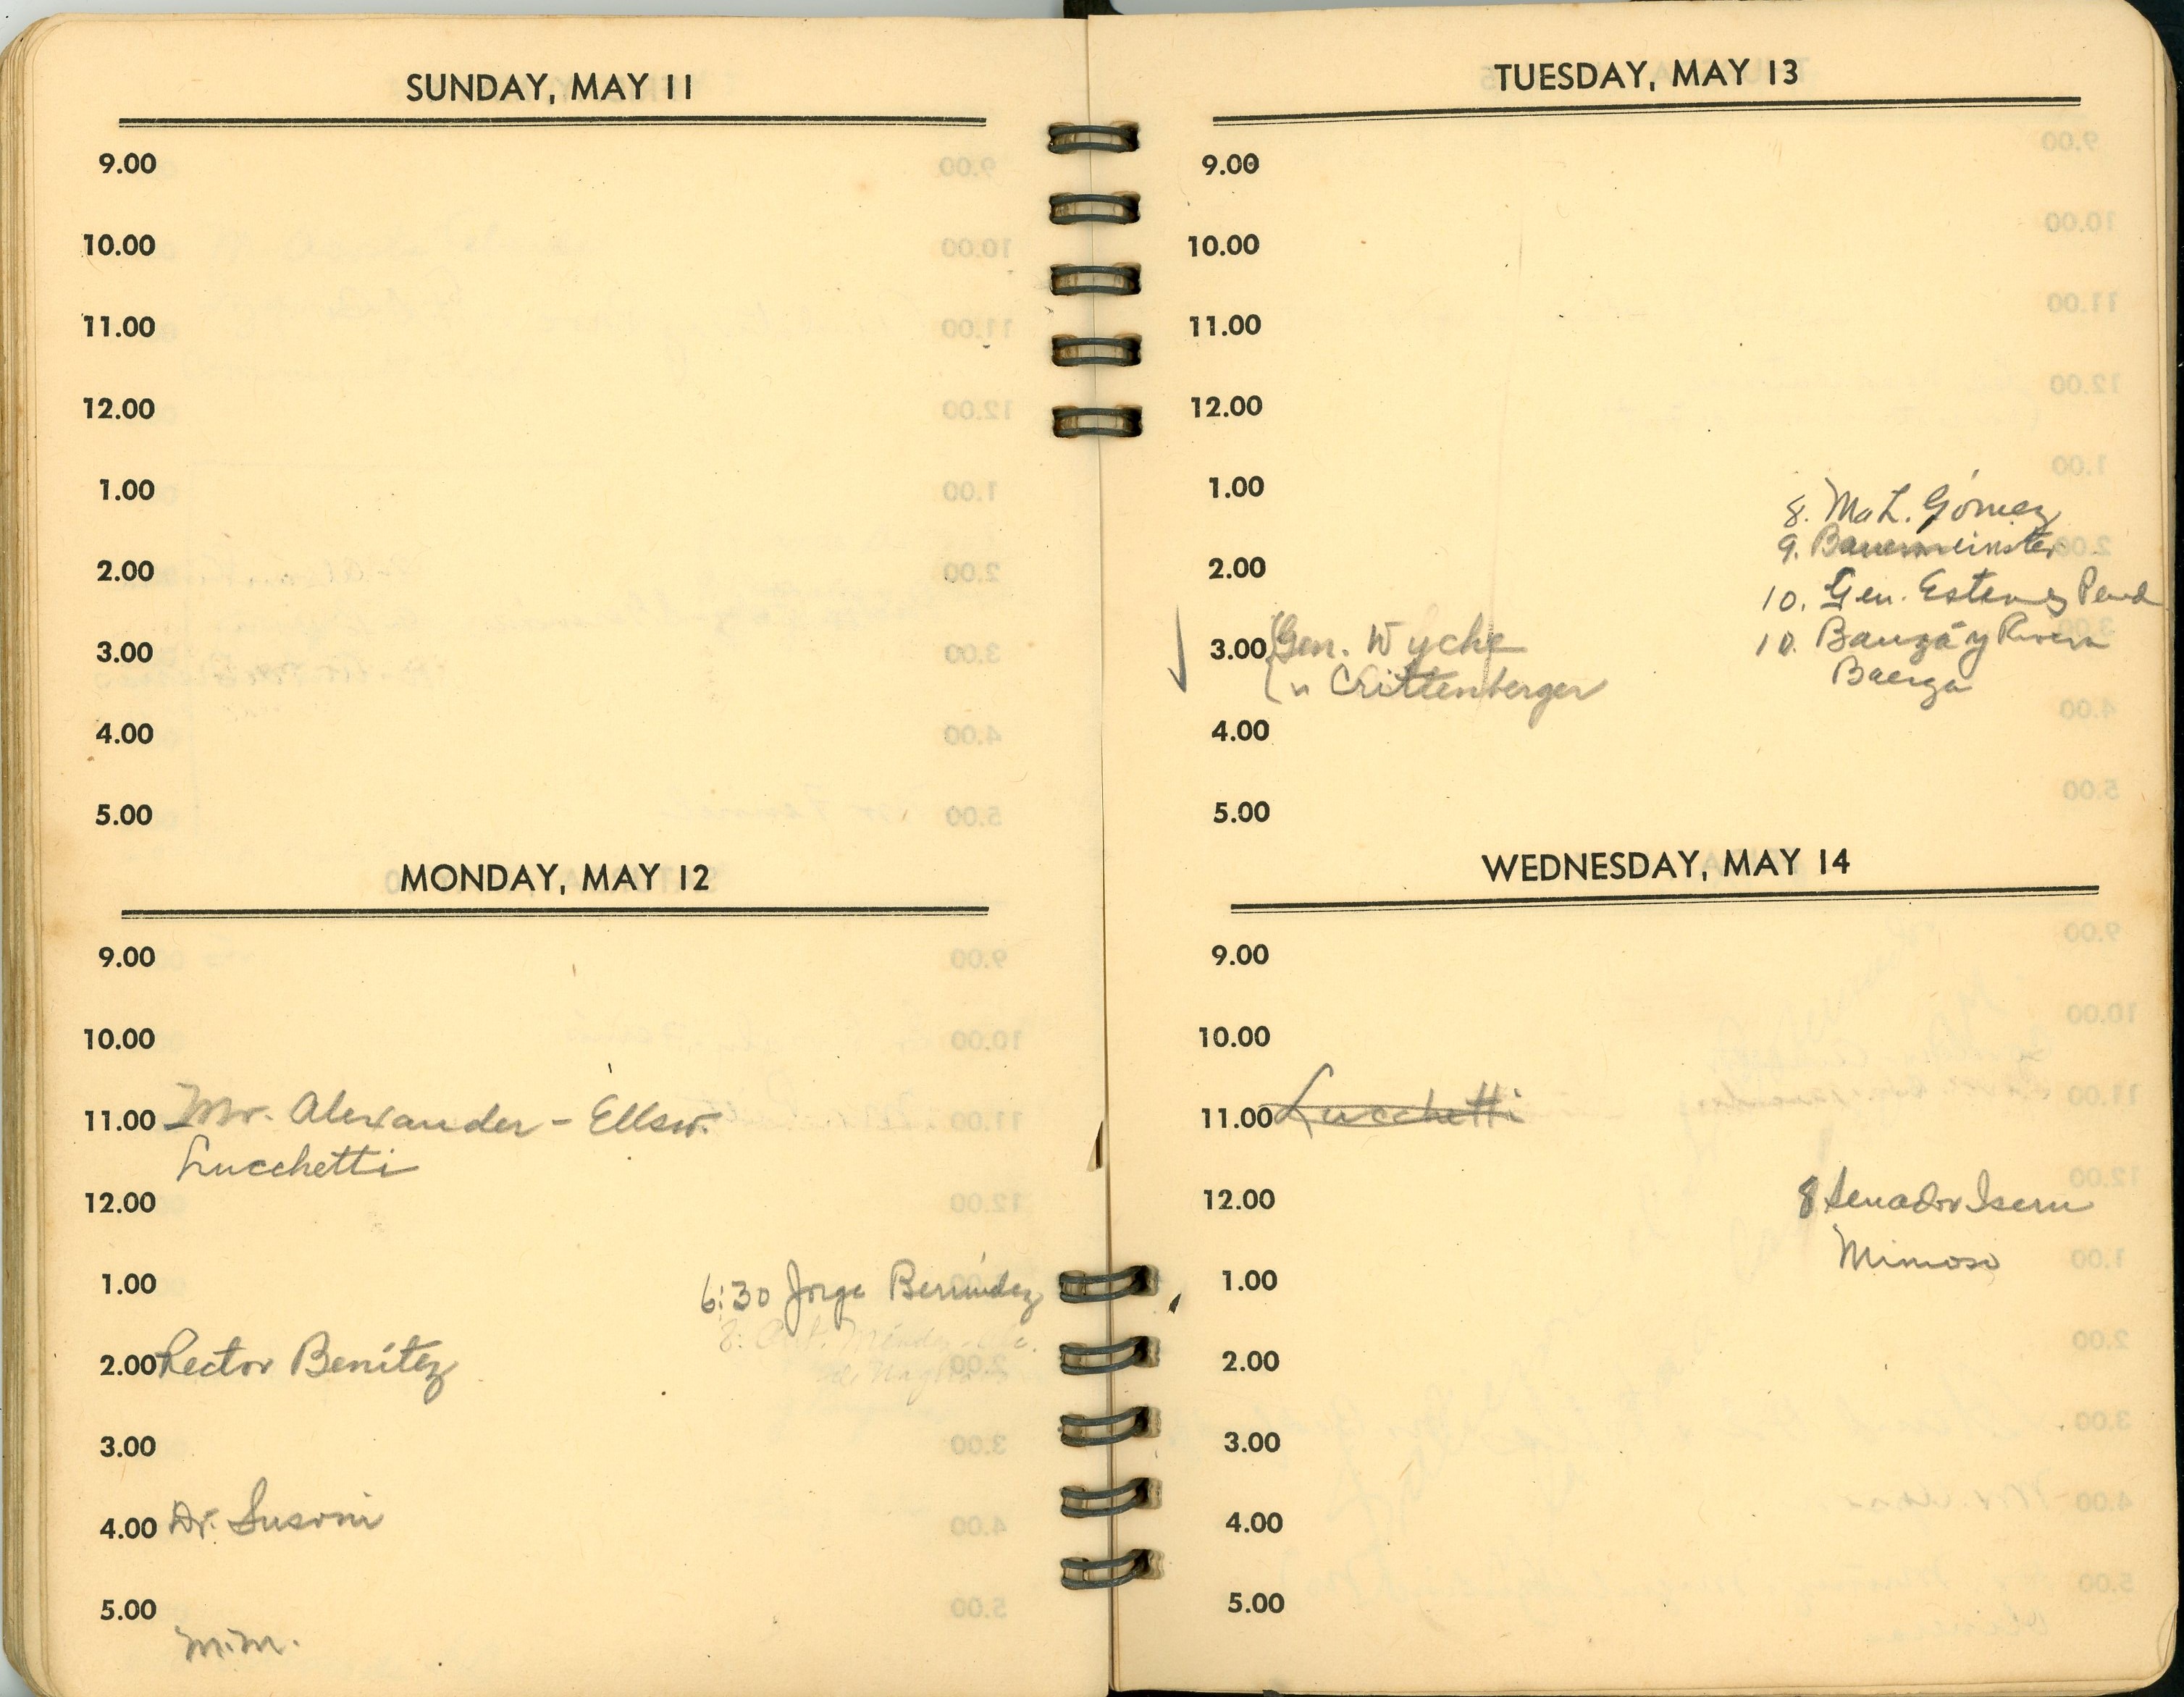 SUNDAY, MAY 11
9.00
10.00
11.00
12.00
1.00
2.00
3.00
4.00
5.00
MONDAY, MAY 12
9.00
10.00
11.00 Mr. Alexander - Ellsw.
Lucchetti
12.00
1.00
6:30 Jorge Bermúdez
8: Méndez
2.00 Rector Benítez
3.00
4.00 Dr. Susoni
5.00
M.M.
TUESDAY, MAY 13
9.00
10.00
11.00
12.00
1.00
8. Ma L. Gómez
9. Bauermeinster
2.00
10. Gen. Esteves
3.00 Gen. Wyche
10. Bauzá y Rivera
" Crittenberger
Baerga
4.00
5.00
WEDNESDAY, MAY 14
9.00
10.00
11.00 Lucchetti
12.00
8 Senador Isern
Mimoso
1.00
2.00
3.00
4.00
5.00